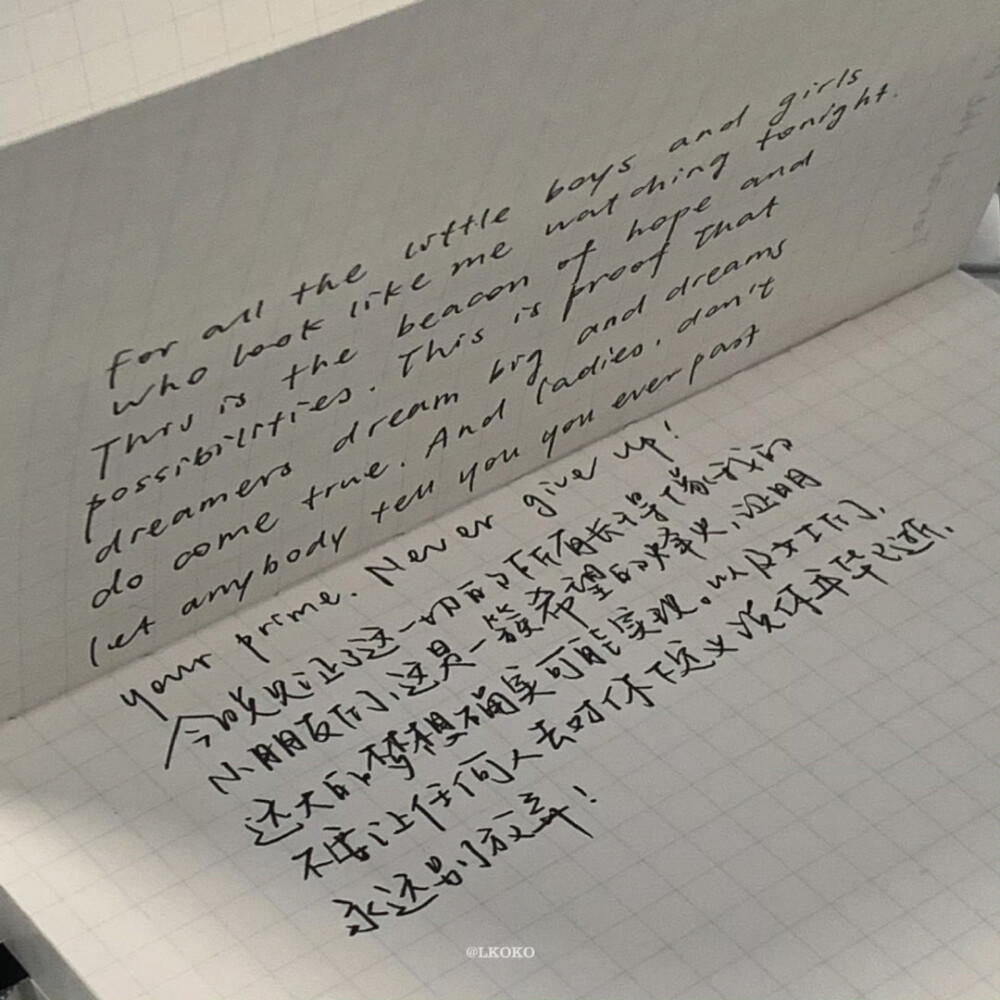 For all the little boys and girls
who look like me watching tonight.
This is the beacon of hope and
possibilities. This is proof that
dreamers dream big and dreams
do come true. And ladies, don't
let anybody tell you you ever past
your prime. Never give up!
今晚见证了这一切的所有长得像我的
小朋友们,这是一簇希望的烽火,证明
远大的梦想确实可能实现。以及女士们,
不要让任何人去对你下定义说你年华已逝,
永远别放弃!
@LKOKO